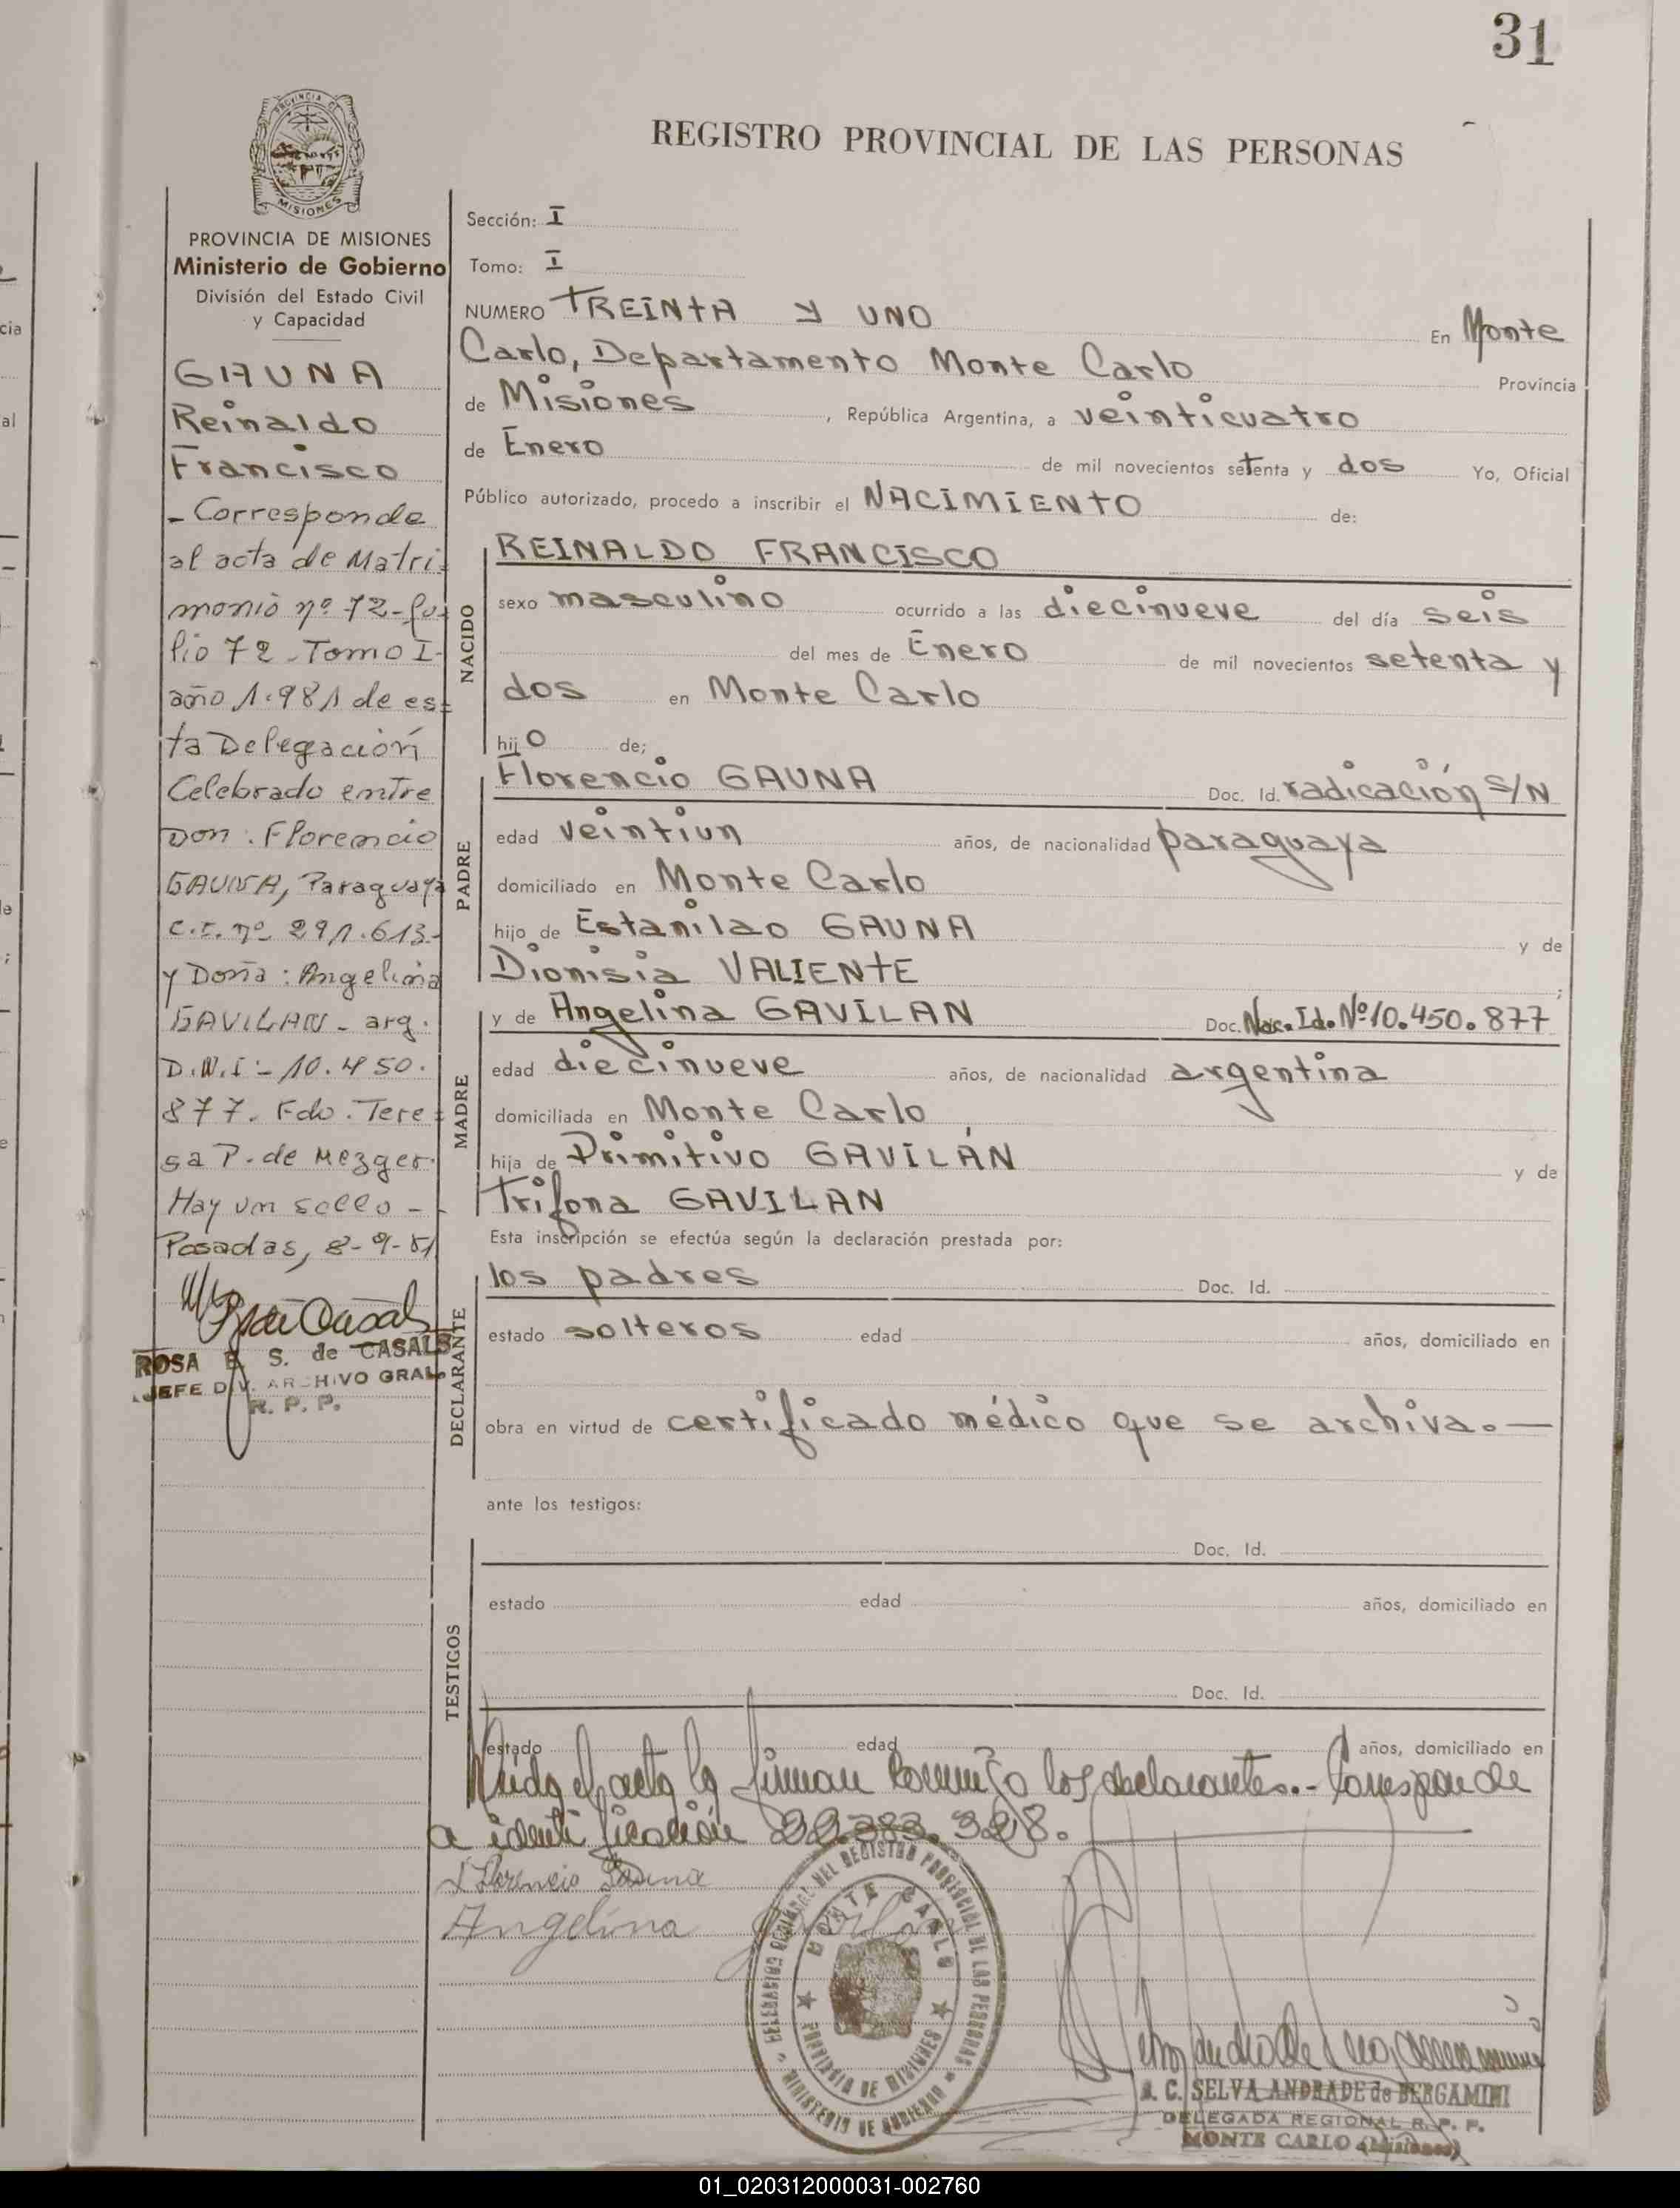 31
REGISTRO PROVINCIAL DE LAS PERSONAS
PROVINCIA DE
MISIONES
PROVINCIA DE MISIONES
Ministerio de Gobierno
División del Estado Civil
y Capacidad
GAUNA
Reinaldo
Francisco
- Corresponde
al acta de Matri-
monio nº 72- fo-
lio 72 - Tomo I-
año 1.981 de es-
ta Delegación
Celebrado entre
Don: Florencio
GAUNA, Paraguaya
C.I. nº 291.613-
y Doña: Angelina
GAVILAN - arg.
D.N.I - 10.450.
877. Fdo. Tere=
sa P. de Mezger.
Hay un sello -
Posadas, 8-9-81
ROSA E. S. de CASALS
JEFE DIV. ARCHIVO GRAL.
R. P. P.
Sección: I
Tomo: I
NUMERO TREINTA Y UNO En Monte
Carlo, Departamento Monte Carlo Provincia
de Misiones, República Argentina, a veinticuatro
de Enero de mil novecientos setenta y dos Yo, Oficial
Público autorizado, procedo a inscribir el NACIMIENTO de:
NACIDO
REINALDO FRANCISCO
sexo masculino ocurrido a las diecinueve del día seis
del mes de Enero de mil novecientos setenta y
dos en Monte Carlo
hijo de;
PADRE
Florencio GAUNA Doc. Id. radicación S/N
edad veintiun años, de nacionalidad paraguaya
domiciliado en Monte Carlo
hijo de Estanilao GAUNA y de
Dionisia VALIENTE ;
MADRE
y de Angelina GAVILAN Doc. Nac. Id. Nº 10.450.877
edad diecinueve años, de nacionalidad argentina
domiciliada en Monte Carlo
hija de Primitivo GAVILÁN y de
Trifona GAVILAN
Esta inscripción se efectúa según la declaración prestada por:
DECLARANTE
los padres Doc. Id.
estado solteros edad años, domiciliado en
obra en virtud de certificado médico que se archiva. —
ante los testigos:
TESTIGOS
Doc. Id.
estado edad años, domiciliado en
Doc. Id.
estado edad años, domiciliado en
el acta la firman conmigo los declarantes.- Corresponde
a identificación
Florencio Gauna
Angelina
DELEGACION REGIONAL DEL REGISTRO PROVINCIAL DE LAS PERSONAS
MINISTERIO DE GOBIERNO
MONTE CARLO
PROVINCIA DE MISIONES
C. SELVA ANDRADE de BERGAMINI
DELEGADA REGIONAL R. P. P.
MONTE CARLO (Misiones)
01_020312000031-002760